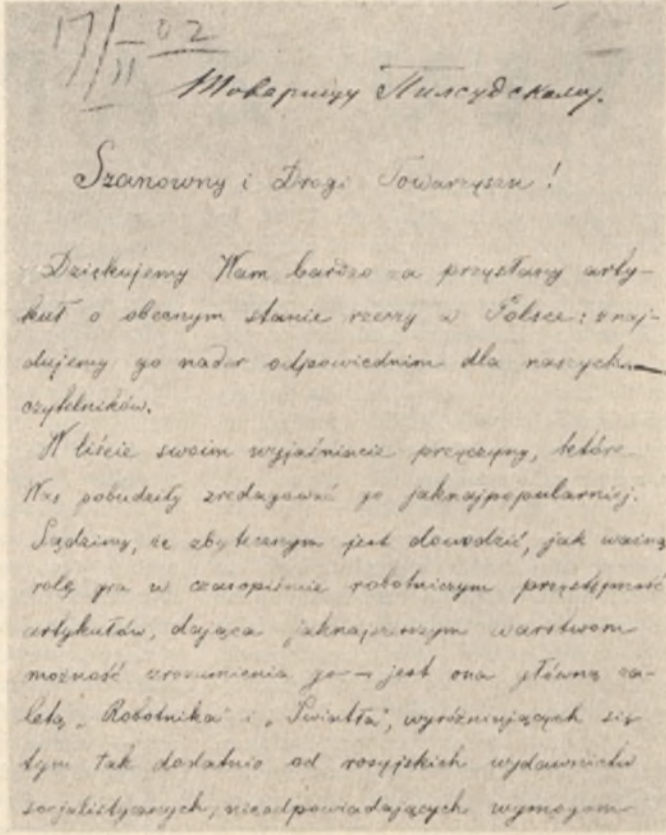 17/II - 02
Товарищу Пилсудскому.
Szanowny i Drogi Towarzyszu!
Dziękujemy Wam bardzo za przysłany arty-
kuł o obecnym stanie rzeczy w Polsce: znaj-
dujemy go nader odpowiednim dla naszych
czytelników.
W liście swoim wyjaśniacie przyczyny, które
Was pobudziły zredagować go jaknajpopularniej.
Sądzimy, że zbytecznym jest dowodzić, jak ważną
rolę gra w czasopiśmie robotniczym przystępność
artykułów, dająca jaknajszerszym warstwom
możność zrozumienia go — jest ona główną za-
letą „Robotnika" i „Światła", wyróżniających się
tym tak dodatnio od rosyjskich wydawnictw
socjalistycznych, nieodpowiadających wymogom